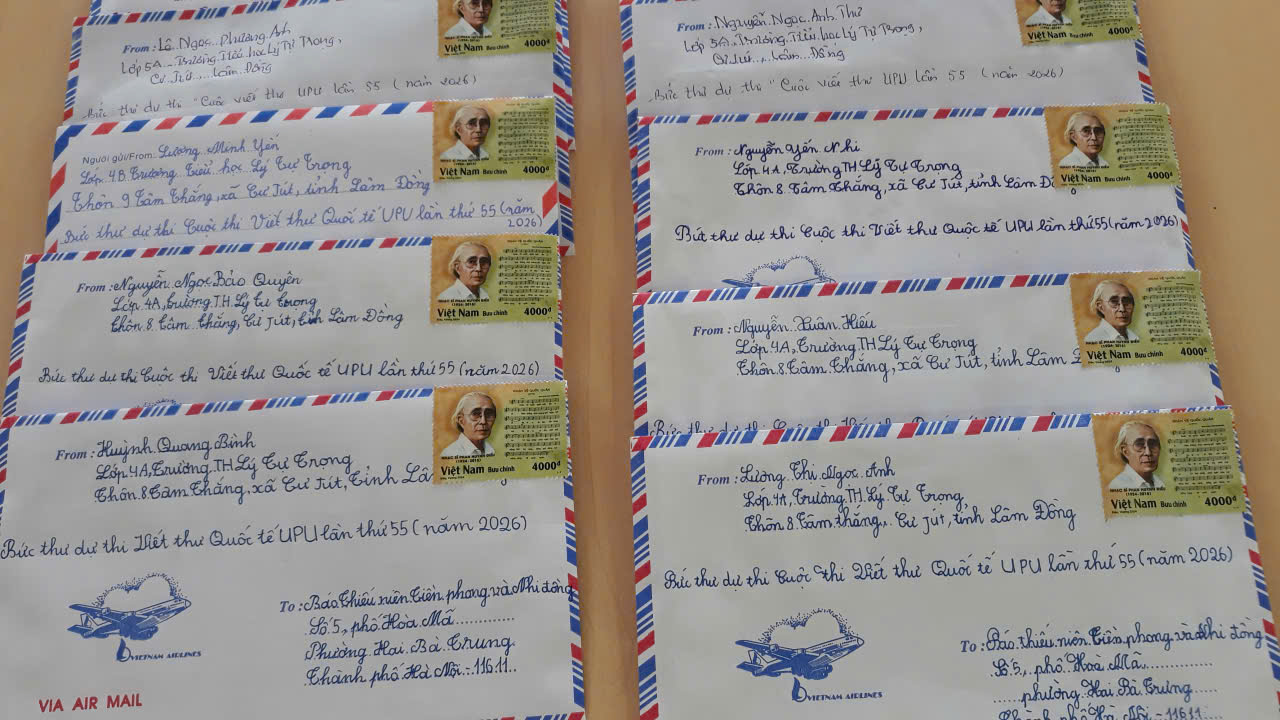 From : Lê Ngọc Phương Anh
Lớp 5A Trường Tiểu học Lý Tự Trọng,
Cư Jút, Lâm Đồng
Việt Nam Bưu chính 4000đ
Bức thư dự thi "Cuộc viết thư UPU lần 55 (năm 2026)
Người gửi/From: Lương Minh Yến
Lớp 4B Trường Tiểu học Lý Tự Trọng
Thôn 9 Tâm Thắng, xã Cư Jút, tỉnh Lâm Đồng
Việt Nam Bưu chính 4000đ
Bức thư dự thi Cuộc thi Viết thư Quốc tế UPU lần thứ 55 (năm
2026)
From : Nguyễn Ngọc Bảo Quyên
Lớp 4A, Trường TH Lý Tự Trọng
Thôn 8 Tâm Thắng, Cư Jút, tỉnh Lâm Đồng
NHẠC SĨ PHAN HUỲNH ĐIỂU
Việt Nam Bưu chính 4000đ
Bức thư dự thi Cuộc thi Viết thư Quốc tế UPU lần thứ 55 (năm 2026)
From : Huỳnh Quang Bính
Lớp 4A, Trường TH Lý Tự Trọng
Thôn 8 Tâm Thắng, xã Cư Jút, Tỉnh Lâ
NHẠC SĨ PHAN HUỲNH ĐIỂU
(1924 - 2015)
Việt Nam Bưu chính 4000đ
Bức thư dự thi Viết thư Quốc tế UPU lần thứ 55 (năm 2026)
VIETNAM AIRLINES
To : Báo Thiếu niên Tiền phong và Nhi đồng
Số 5, phố Hòa Mã
Phường Hai Bà Trưng
Thành phố Hà Nội - 11611
VIA AIR MAIL
From : Nguyễn Ngọc Anh Thư
Lớp 5A, Trường Tiểu học Lý Tự Trọng,
Cư Jút, Lâm Đồng
Việt Nam Bưu chính 4000đ
Bức thư dự thi "Cuộc viết thư UPU lần 55 (năm 2026)
From : Nguyễn Yên Nhi
Lớp 4A, Trường TH Lý Tự Trọng
Thôn 8 Tâm Thắng, xã Cư Jút, tỉnh Lâm Đồ
NHẠC SĨ PHAN HUỲNH ĐIỂU
Việt Nam Bưu chính 4000đ
Bức thư dự thi Cuộc thi Viết thư Quốc tế UPU lần thứ 55 (năm 2026)
From : Nguyễn Xuân Hiếu
Lớp 4A, Trường TH Lý Tự Trọng
Thôn 8 Tâm Thắng, xã Cư Jút, tỉnh Lâm
NHẠC SĨ PHAN HUỲNH ĐIỂU
(1924 - 2015)
Việt Nam Bưu chính 4000đ
From : Lương Thị Ngọc Anh
Lớp 4A, Trường TH Lý Tự Trọng,
Thôn 8 Tâm thắng, Cư Jút, tỉnh Lâm Đồng
NHẠC SĨ PHAN HUỲNH ĐIỂU
(1924 - 2015)
Việt Nam Bưu chính 4000đ
Bức thư dự thi Cuộc thi Viết thư Quốc tế UPU lần thứ 55 (năm 2026)
VIETNAM AIRLINES
To : Báo thiếu niên Tiền phong và Nhi đồng
Số 5, phố Hoà Mã
phường Hai Bà Trưng
Thành phố Hà Nội - 11611